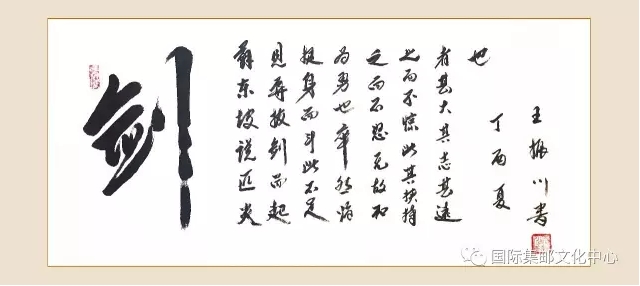 剑
苏东坡说匹夫
见辱拔剑而起
挺身而斗此不足
为勇也卒然临
之而不无故加
之而不惊此其挟持
者甚大其志甚远
也
丁酉夏
王振川書
国际集邮文化中心